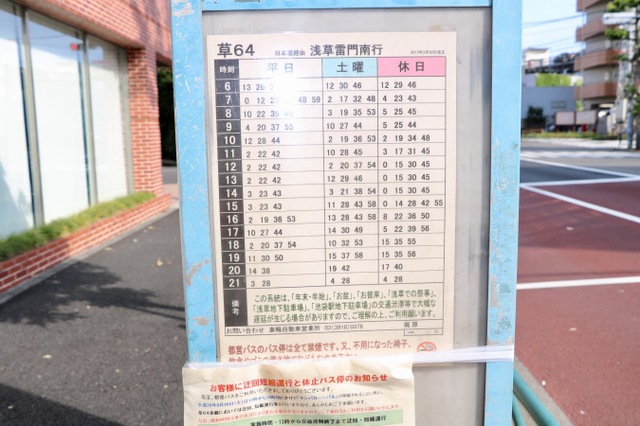 草64 日本堤経由 浅草雷門南行
時刻 平日 土曜 休日
6 13 28 12 30 46 12 29 46
7 0 12 48 59 2 17 32 48 4 23 43
8 10 22 3 19 35 53 5 25 45
9 4 20 37 55 10 27 44 5 25 44
10 12 28 44 2 19 36 53 2 19 34 48
11 2 22 42 10 28 45 3 17 31 45
12 2 22 42 2 20 37 54 0 15 30 45
13 2 22 42 12 29 46 0 15 30 45
14 3 23 43 3 21 38 54 0 15 30 45
15 3 23 43 11 28 43 58 0 14 28 42 55
16 2 19 36 53 13 28 43 58 8 22 36 50
17 10 27 44 14 30 49 5 22 39 56
18 2 20 37 54 10 32 53 15 35 55
19 11 30 50 15 37 58 15 35 56
20 14 38 19 42 17 40
21 3 28 4 28 4 28
備考
この系統は、「年末・年始」、「お盆」、「お彼岸」、「浅草での祭事」、
「浅草地下駐車場」、「池袋駅地下駐車場」の交通渋滞等で大幅な
遅延が生じる場合がありますので、ご理解の上、ご利用願います。
お問い合わせ 巣鴨自動車営業所
都営バスのバス停は全て禁煙です。又、不用になった椅子、
お客様に迂回短縮運行と休止バス停のお知らせ